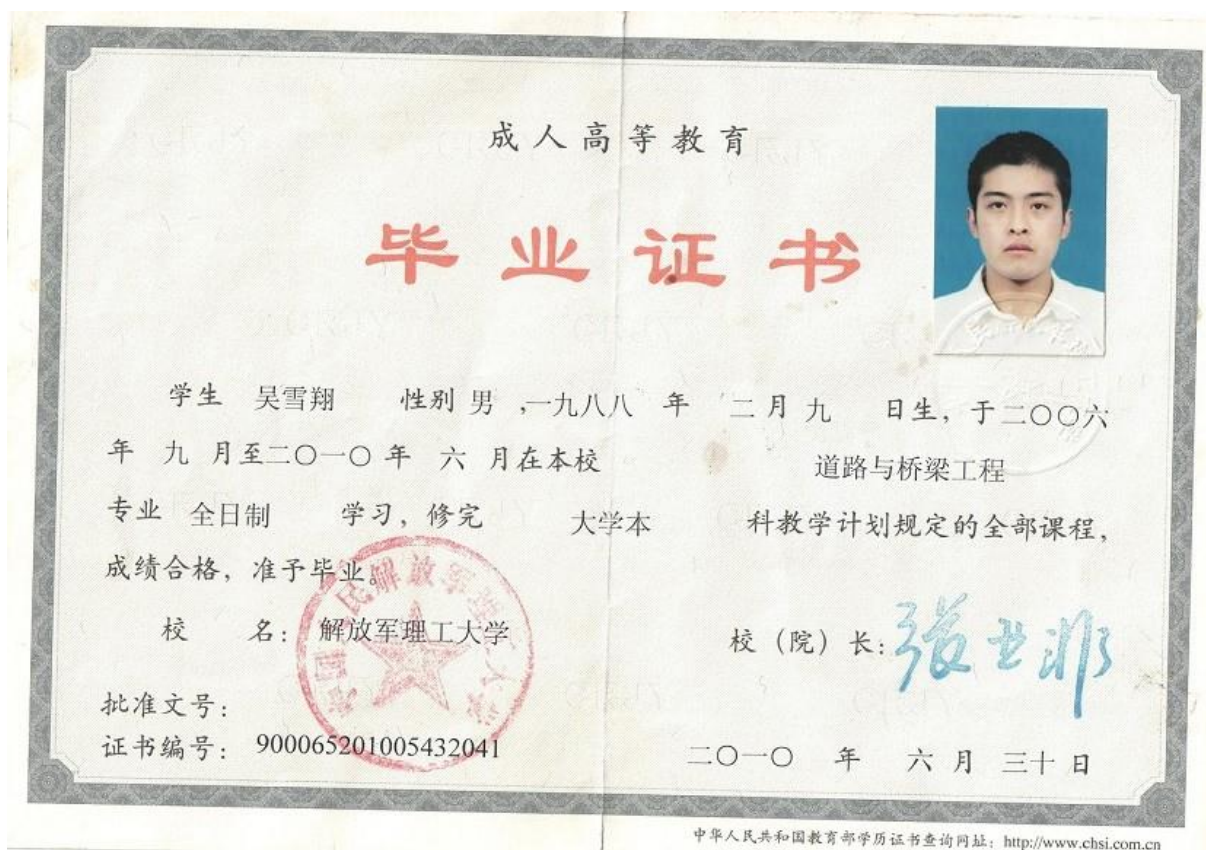 成人高等教育
毕业证书
学生 吴雪翔 性别 男 ,一九八八 年 二月 九 日生, 于二〇〇六
年 九 月至二〇一〇年 六 月在本校 道路与桥梁工程
专业 全日制 学习, 修完 大学本 科教学计划规定的全部课程,
成绩合格, 准予毕业。
校 名: 解放军理工大学 校 (院) 长: 张亚非
批准文号:
证书编号: 900065201005432041 二〇一〇 年 六 月 三十 日
中国人民解放军理工大学
中华人民共和国教育部学历证书查询网址: http://www.chsi.com.cn